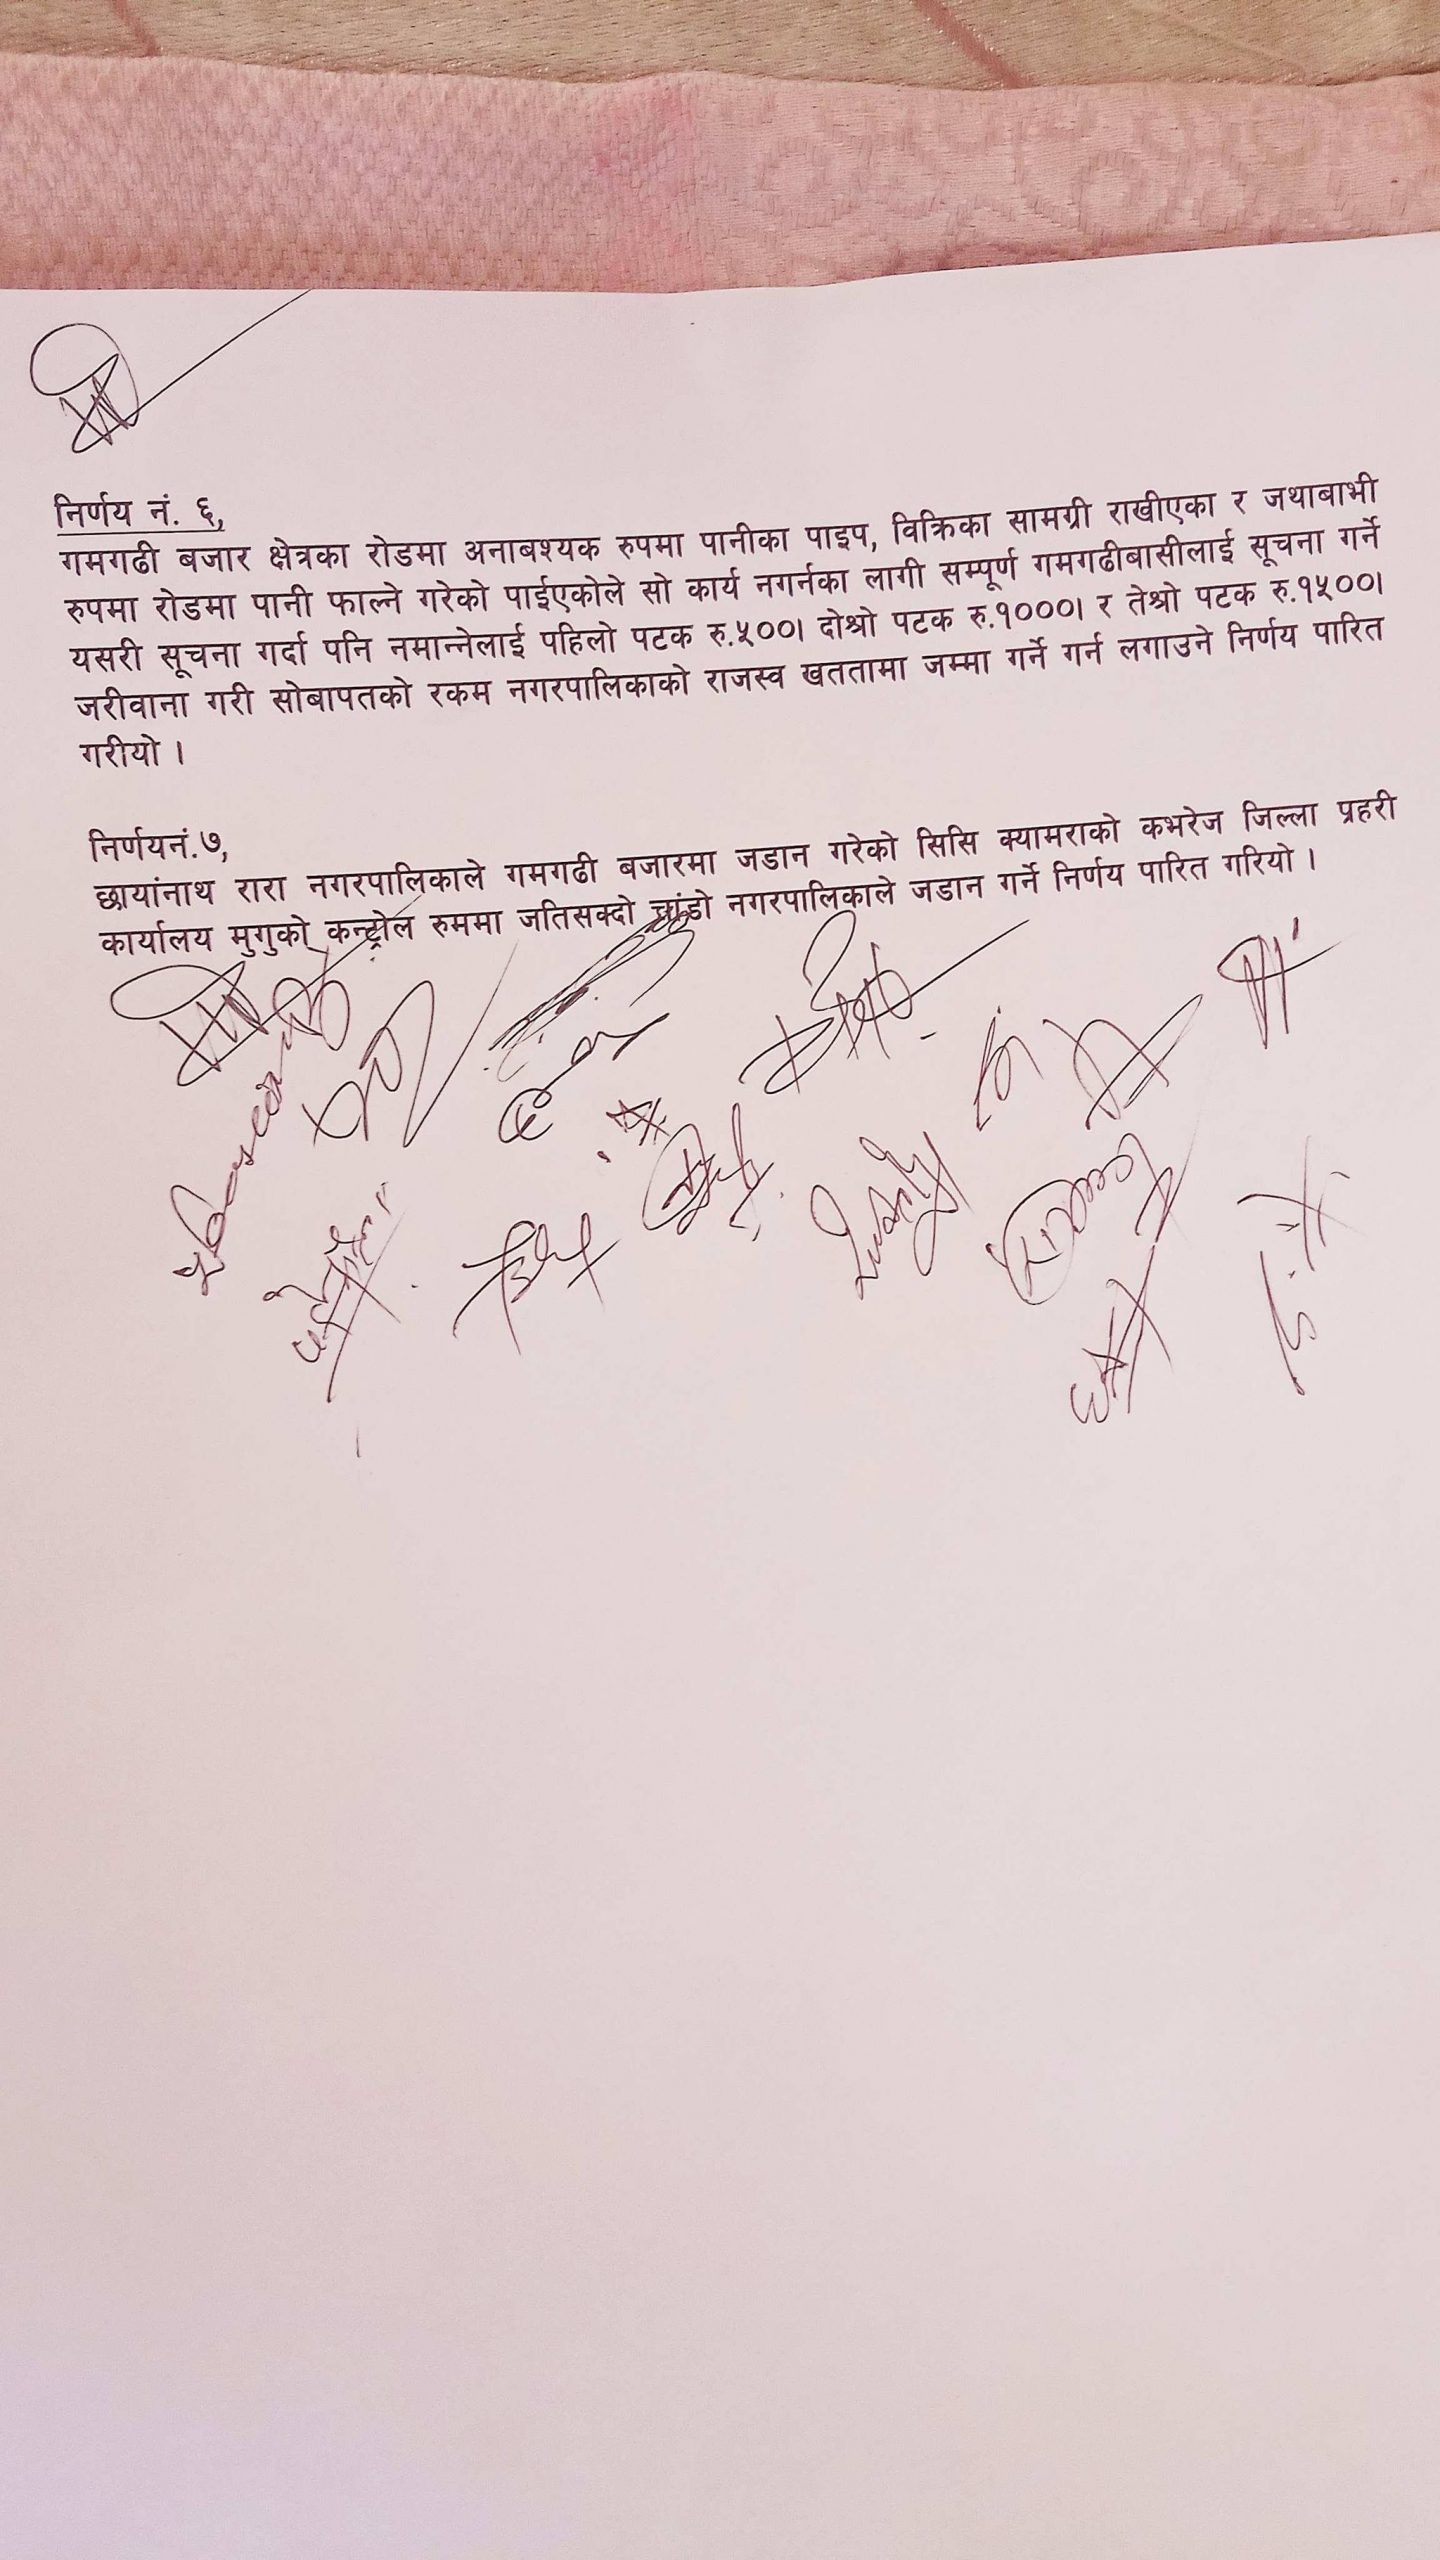 निर्णय नं. ६,
गमगढी बजार क्षेत्रका रोडमा अनाबश्यक रुपमा पानीका पाइप, विक्रिका सामग्री राखीएका र जथाबाभी
रुपमा रोडमा पानी फाल्ने गरेको पाईएकोले सो कार्य नगर्नका लागी सम्पूर्ण गमगढीबासीलाई सूचना गर्ने
यसरी सूचना गर्दा पनि नमान्नेलाई पहिलो पटक रु.५००। दोश्रो पटक रु.१०००। र तेश्रो पटक रु.१५००।
जरीवाना गरी सोबापतको रकम नगरपालिकाको राजस्व खततामा जम्मा गर्ने गर्न लगाउने निर्णय पारित
गरीयो ।
निर्णयनं.७,
छायांनाथ रारा नगरपालिकाले गमगढी बजारमा जडान गरेको सिसि क्यामराको कभरेज जिल्ला प्रहरी
कार्यालय मुगुको कन्ट्रोल रुममा जतिसक्दो चांडो नगरपालिकाले जडान गर्ने निर्णय पारित गरियो ।